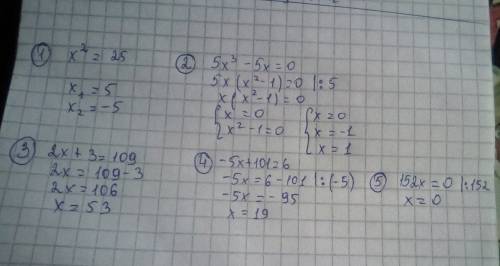 ① x² = 25
x₁ = 5
x₂ = -5
② 5x³ - 5x = 0
5x (x² - 1) = 0 |: 5
x (x² - 1) = 0
{ x = 0
x² - 1 = 0
{ x = 0
x = -1
x = 1
③ 2x + 3 = 109
2x = 109 - 3
2x = 106
x = 53
④ -5x + 101 = 6
-5x = 6 - 101 |: (-5)
-5x = - 95
x = 19
⑤ 152x = 0 |: 152
x = 0